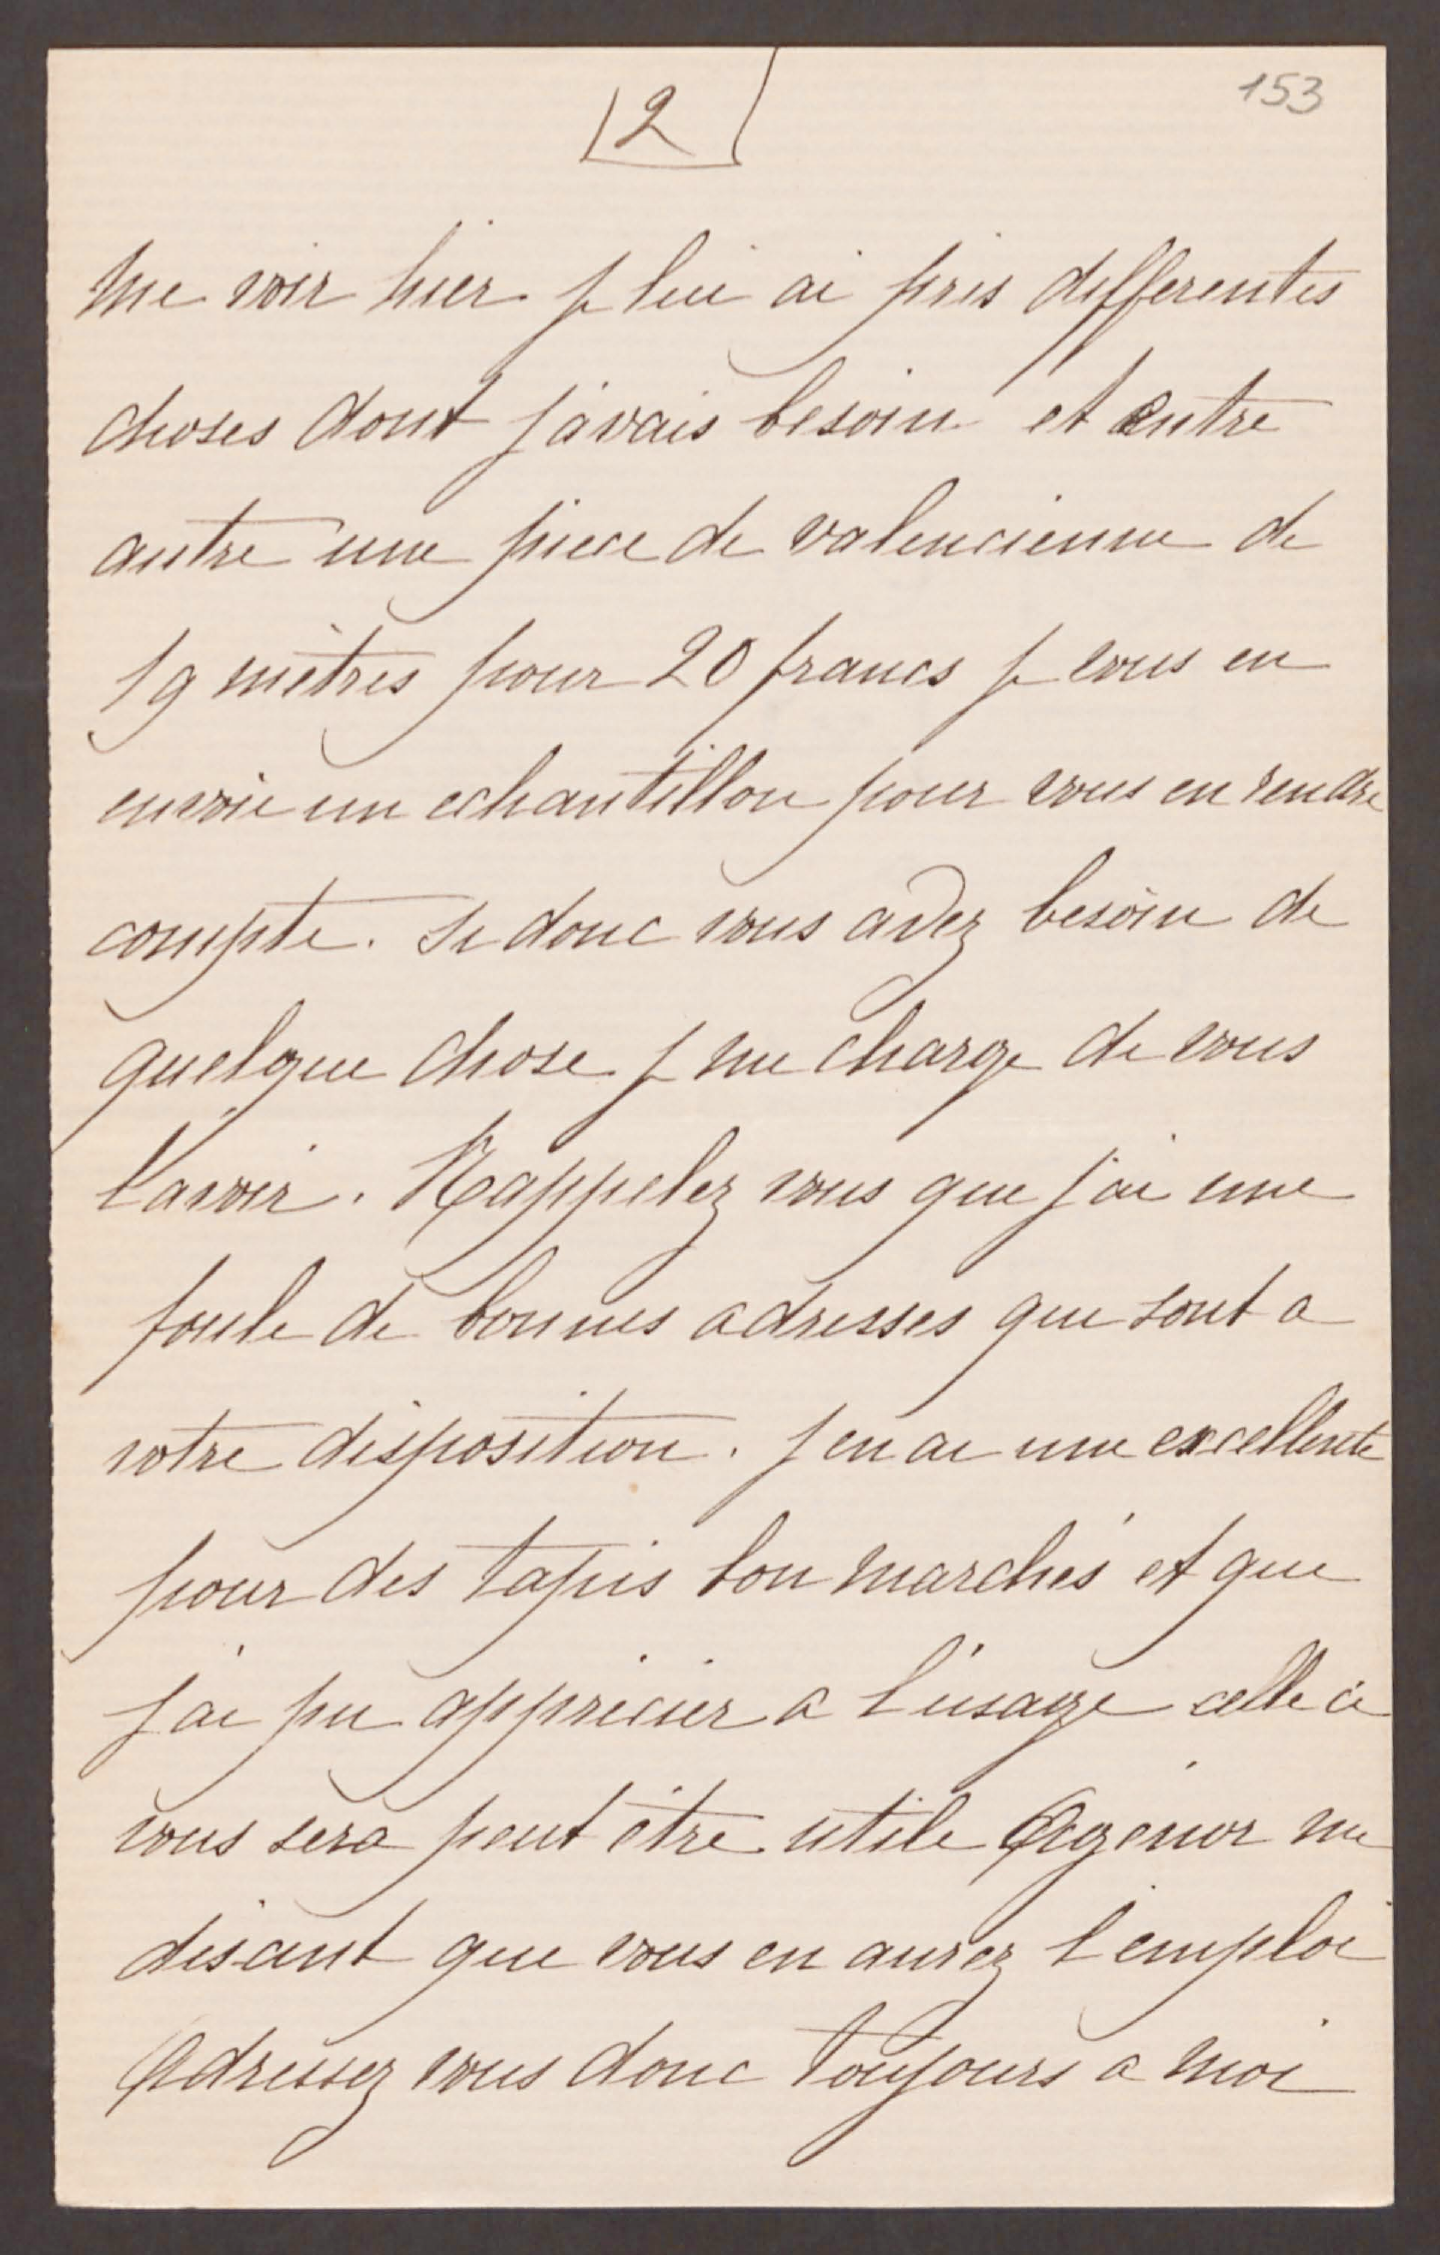 153
2
me voir hier je lui ai pris differentes
choses dont j'avais besoin et entre
autre une piece de valencienne de
19 mètres pour 20 francs je vous en
envoie un echantillon pour vous en rendre
compte. Si donc vous avez besoin de
quelque chose je me charge de vous
l'avoir. Rappelez vous que j'ai une
foule de bonnes adresses qui sont a
votre disposition. J'en ai une excellente
pour des tapis bon marchés et que
j'ai pu apprécier a l'usage celle ci
vous sera peut être utile Agenor me
disant que vous en aurez l'emploi
Adressez vous donc toujours a moi